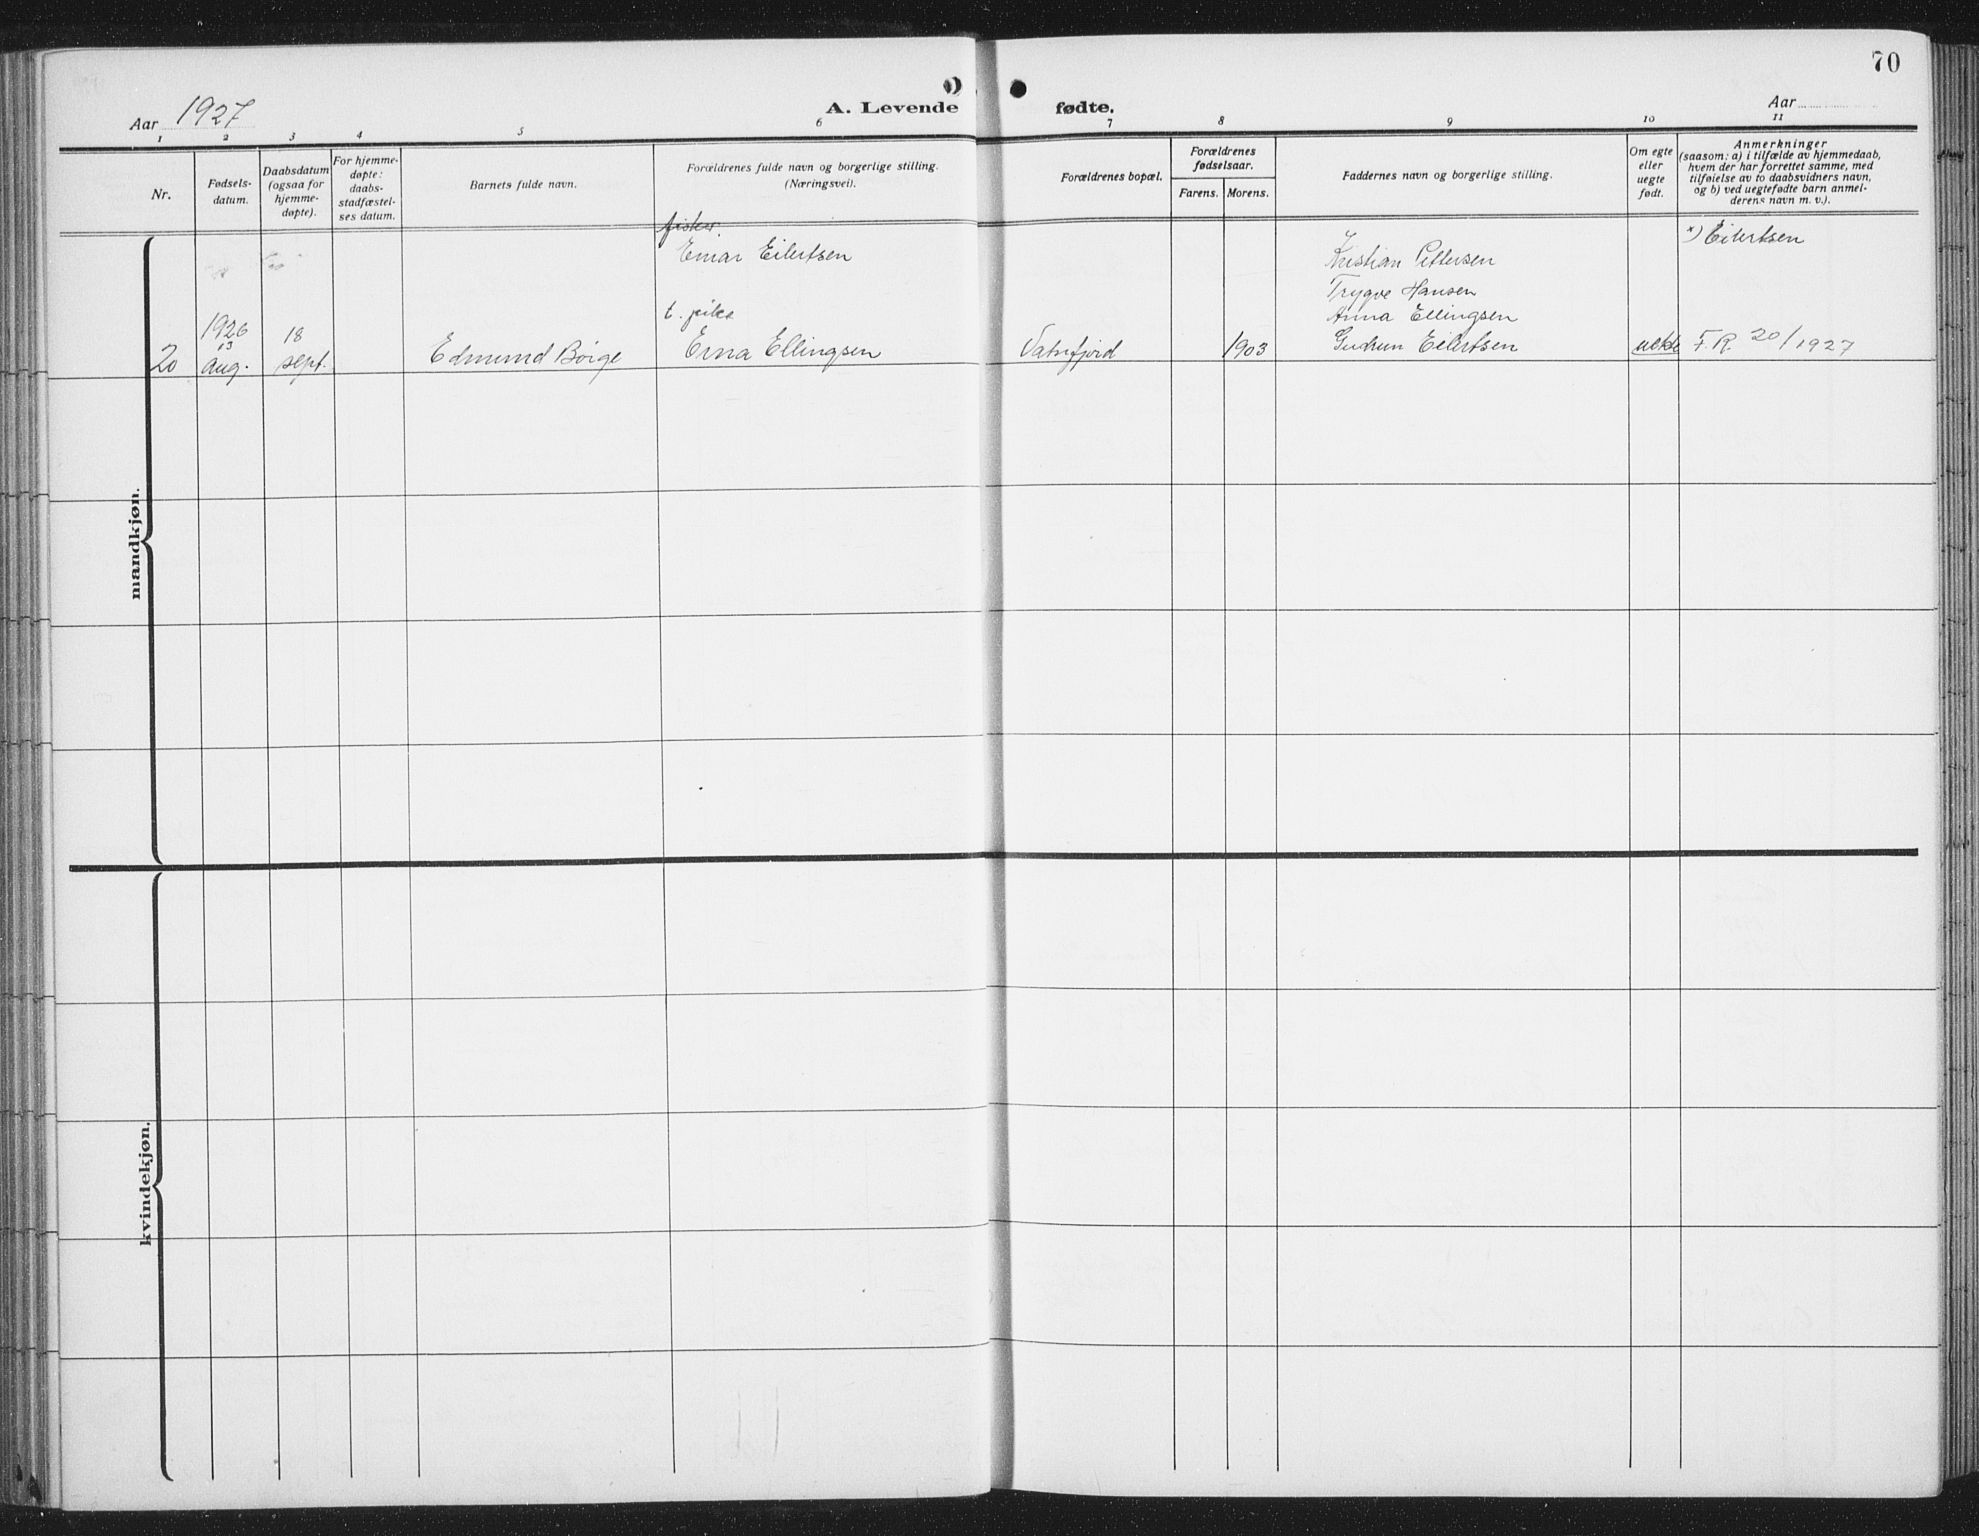 70
Aar 1927
A. Levende fødte.
Aar
1 2 3 4 5 6 7 8 9 10 11
Nr.
Fødsels-
datum.
Daabsdatum
(ogsaa for
hjemme-
døpte).
For hjemme-
døpte:
daabs-
stadfæstel-
ses datum.
Barnets fulde navn.
Forældrenes fulde navn og borgerlige stilling.
(Næringsvei).
Forældrenes bopæl.
Forældrenes
fødselsaar.
Farens. Morens.
Faddernes navn og borgerlige stilling.
Om egte
eller
uegte
født.
Anmerkninger
(saasom: a) i tilfælde av hjemmedaab,
hvem der har forrettet samme, med
tilføielse av to daabsvidners navn,
og b) ved uegtefødte barn anmel-
derens navn m. v.).
mandkjøn.
20
1926
13
aug.
18
sept.
Edmund Börge
fisker
Einar Eilertsen
t. pike
Erna Ellingsen
Vatnfjord
1903
Kristian Pettersen
Trygve Hansen
Anna Ellingsen
Gudrun Eilertsen
uekte
*) Eilertsen
F. R. 20/1927
kvindekjøn.